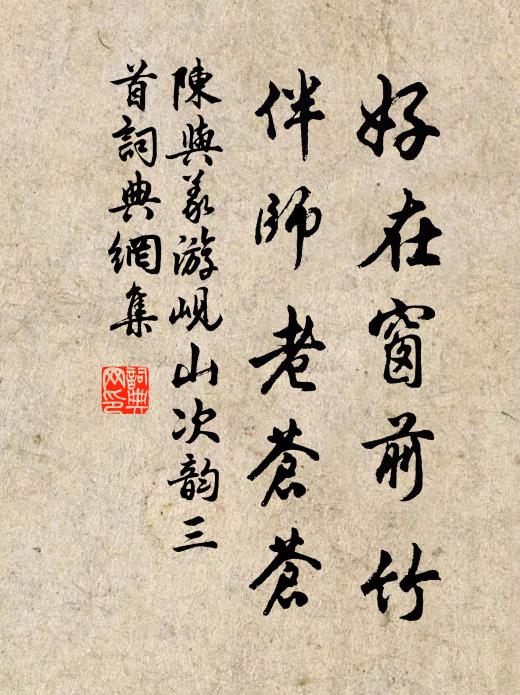 好在窗前竹
伴師老蒼蒼
陳與義游峴山次韵三
首詞典網集
詞典網印